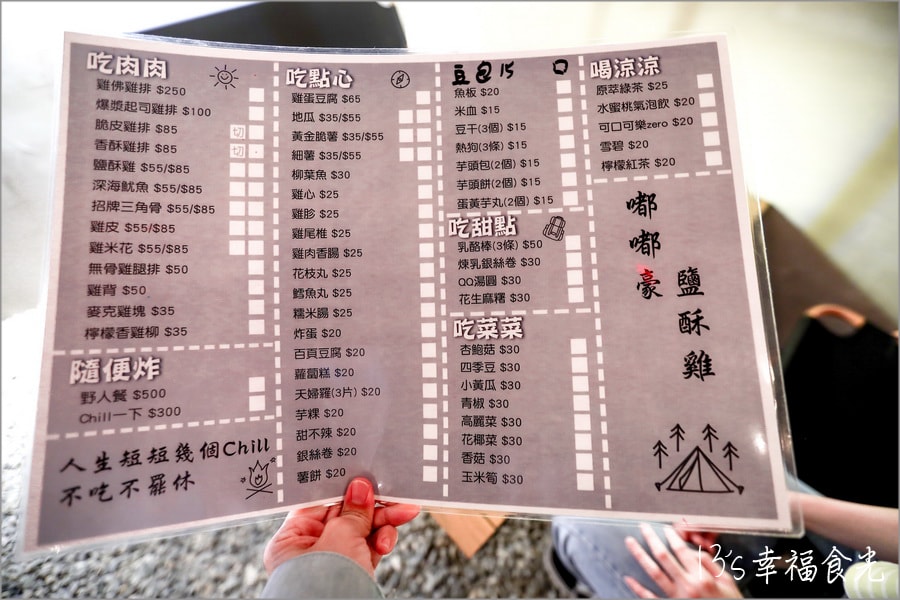 吃肉肉
雞佛雞排 $250
爆漿起司雞排 $100
脆皮雞排 $85
切
香酥雞排 $85
切
鹽酥雞 $55/$85
深海魷魚 $55/$85
招牌三角骨 $55/$85
雞皮 $55/$85
雞米花 $55/$85
無骨雞腿排 $50
雞背 $50
麥克雞塊 $35
檸檬香雞柳 $35
隨便炸
野人餐 $500
Chill一下 $300
人生短短幾個Chill
不吃不罷休
吃點心
雞蛋豆腐 $65
地瓜 $35/$55
黃金脆薯 $35/$55
細薯 $35/$55
柳葉魚 $30
雞心 $25
雞胗 $25
雞尾椎 $25
雞肉香腸 $25
花枝丸 $25
鱈魚丸 $25
糯米腸 $25
炸蛋 $20
百頁豆腐 $20
蘿蔔糕 $20
天婦羅(3片) $20
芋粿 $20
甜不辣 $20
銀絲卷 $20
薯餅 $20
豆包 15
魚板 $20
米血 $15
豆干(3個) $15
熱狗(3條) $15
芋頭包(2個) $15
芋頭餅(2個) $15
蛋黃芋丸(2個) $15
吃甜點
乳酪棒(3條) $50
煉乳銀絲卷 $30
QQ湯圓 $30
花生麻糬 $30
吃菜菜
杏鮑菇 $30
四季豆 $30
小黃瓜 $30
青椒 $30
高麗菜 $30
花椰菜 $30
香菇 $30
玉米筍 $30
喝涼涼
原萃綠茶 $25
水蜜桃氣泡飲 $20
可口可樂zero $20
雪碧 $20
檸檬紅茶 $20
嘟嘟豪
鹽酥雞
13's幸福食光